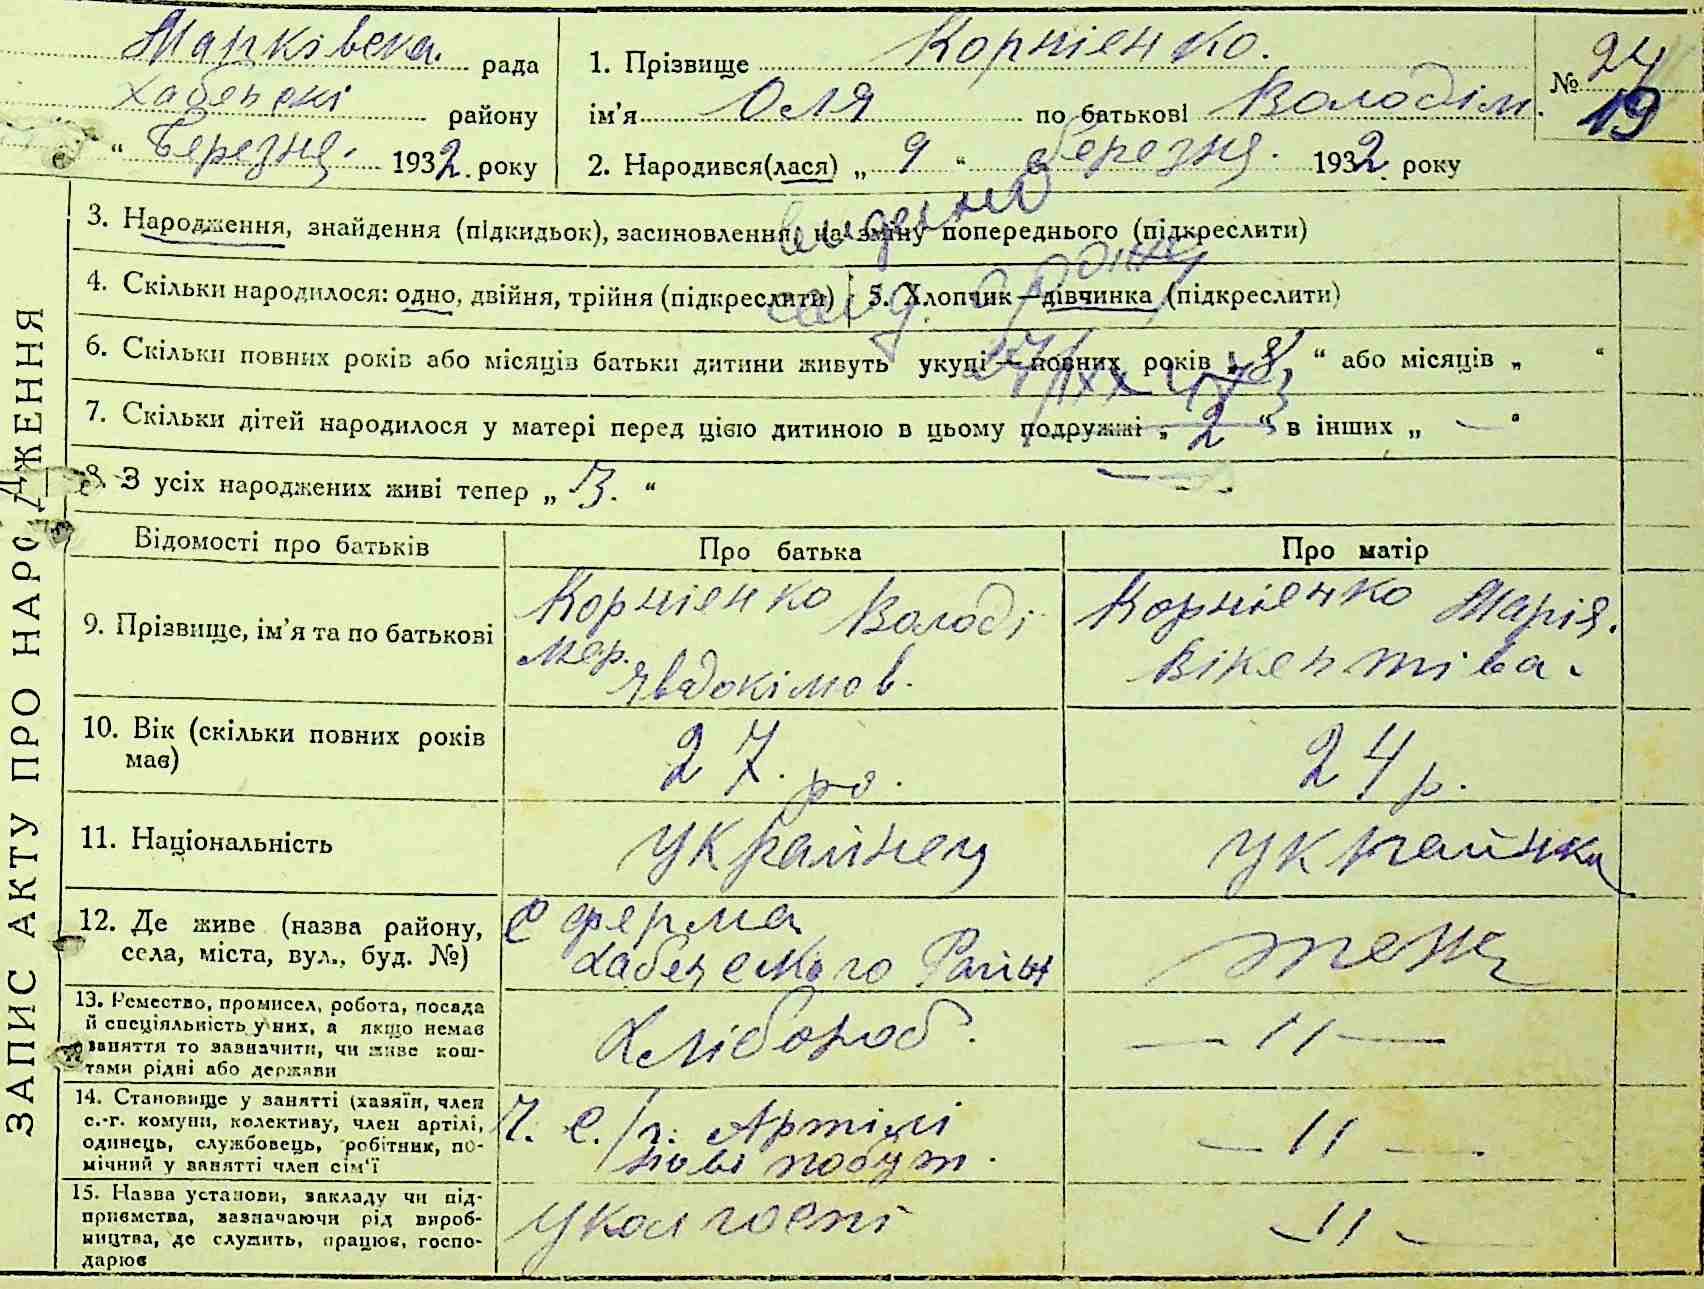 Марківска. рада
Хабенскі району
“ Березня. 1932. року
1. Прізвище Корнієнко.
ім'я Оля по батькові Володім.
2. Народився(лася) „ 9 “ березня. 1932. року
№ 24
19
ЗАПИС АКТУ ПРО НАРОДЖЕННЯ
3. Народження, знайдення (підкидьок), засиновлення, на зміну попереднього (підкреслити)
4. Скільки народилося: одно, двійня, трійня (підкреслити) 5. Хлопчик—дівчинка (підкреслити)
6. Скільки повних років або місяців батьки дитини живуть укупі—повних років „ 8 “ або місяців „ “
7. Скільки дітей народилося у матері перед цією дитиною в цьому подружжі „ 2 “ в інших „ — “
8. З усіх народжених живі тепер „ 3. “
Відомості про батьків Про батька Про матір
9. Прізвище, ім'я та по батькові
Корнієнко Володі
мер.
Явдокімов.
Корнієнко Марія.
Вікентіва.
10. Вік (скільки повних років
має)
27. ро.
24 р.
11. Національність
Українец
Українка
12. Де живе (назва району,
села, міста, вул., буд. №)
с ферма
Хабенского Район
тоже
13. Ремество, промисел, робота, посада
й спеціяльність у них, а якщо немає
заняття то зазначити, чи живе кош-
тами рідні або держави
Хлібороб.
— 11 —
14. Становище у занятті (хазяїн, член
с.-г. комуни, колективу, член артілі,
одинець, службовець, робітник, по-
мічний у занятті член сім'ї
Ч. с./г. Артілі
нові побут.
— 11 —
15. Назва установи, закладу чи під-
приємства, зазначаючи рід вироб-
ництва, де служить, працює, госпо-
дарює
Уколгоспі
— 11 —